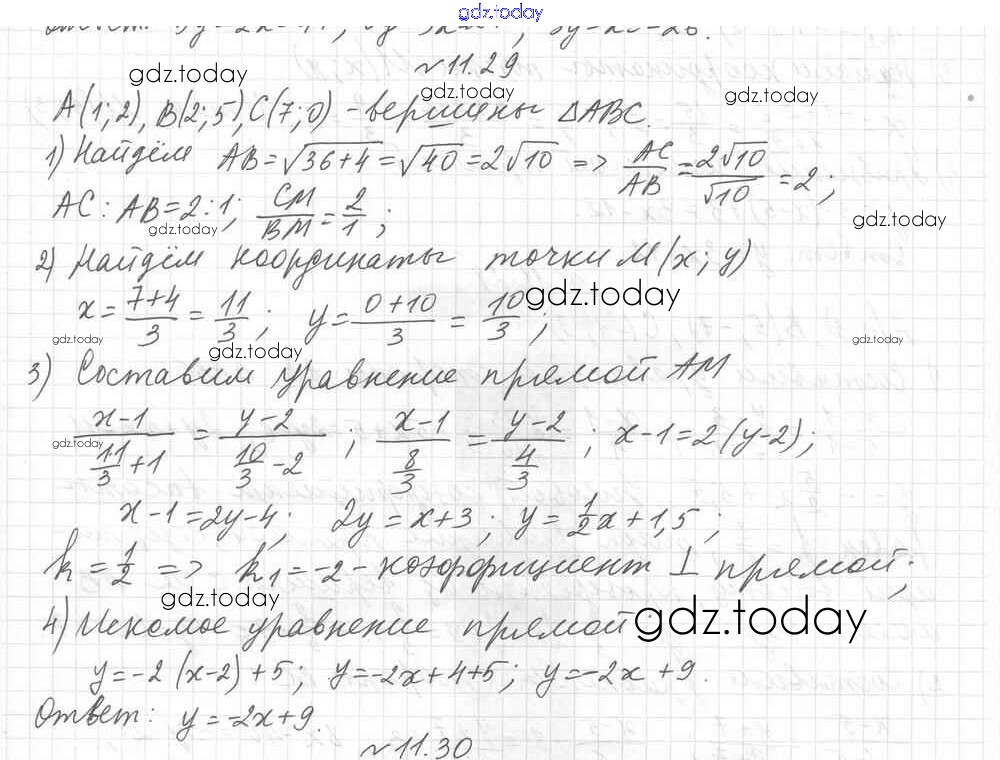 gdz.today
№11.29
gdz.today gdz.today gdz.today
A(1;2), B(2;5), C(7;0) - вершины ΔABC.
1) Найдём AB=√36+4=√40=2√10 => AC/AB=2√10/√10=2;
AC:AB=2:1; CM/BM=2/1;
gdz.today gdz.today
2) Найдём координаты точки M(x;y)
x=7+4/3=11/3; y=0+10/3=10/3;
gdz.today
gdz.today gdz.today gdz.today
3) Составим уравнение прямой AM
x-1/11/3+1=y-2/10/3-2; x-1/8/3=y-2/4/3; x-1=2(y-2);
gdz.today
x-1=2y-4; 2y=x+3; y=1/2x+1,5;
k=1/2 => k1=-2-коэффициент ⊥ прямой;
gdz.today gdz.today
4) Искомое уравнение прямой
y=-2(x-2)+5; y=-2x+4+5; y=-2x+9.
Ответ: y=-2x+9.
№11.30